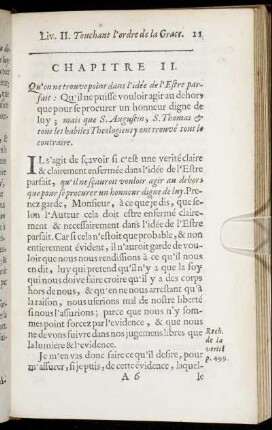 Liv. II. Touchant l'ordre de la Grace. 11
CHAPITRE II.
Qu'on ne trouve point dans l'idée de l'Estre par-
fait: Qu'il ne puisse vouloir agir au dehors
que pour se procurer un honneur digne de
luy; mais que S. Augustin, S. Thomas &
tous les habiles Theologiens y ont trouvé tout le
contraire.
IL s'agit de sçavoir si c'est une verité claire
& clairement enfermée dans l'idée de l'Estre
parfait, qu'il ne sçauroit vouloir agir au dehors
que pour se procurer un honneur digne de luy. Pre-
nez garde, Monsieur, à ce que je dis, que se-
lon l'Auteur cela doit estre enfermé claire-
ment & necessairement dans l'idée de l'Estre
parfait. Car si cela n'estoit que probable, & non
entierement évident, il n'auroit garde de vou-
loir que nous nous rendissions à ce qu'il nous
en dit, luy qui pretend qu'il n'y a que la foy
qui nous doive faire croire qu'il y a des corps
hors de nous, & qu'en ne nous arrestant qu'à
la raison, nous userions mal de nostre liberté
si nous l'assurions; parce que nous n'y som-
mes point forcez par l'evidence, & que nous
ne devons suivre dans nos jugemens libres que
la lumiere & l'evidence.
Rech.
de la
verité
p. 499.
Je m'en vas donc faire ce qu'il desire, pour
m'assurer, si je puis, de cette évidence, laquel-
A 6 le